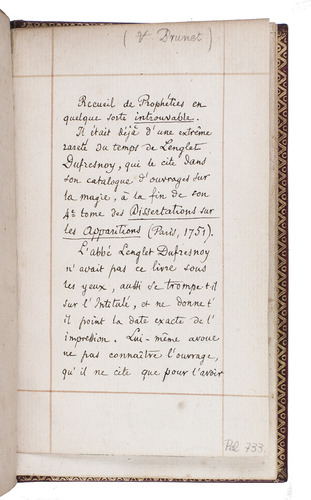 (Vr Brunet)
Recueil de Prophéties en
quelque sorte introuvable.
Il était déjà d'une extrême
rareté du temps de Lenglet
Dufresnoy, qui le cite dans
son catalogue d'ouvrages sur
la magie, à la fin de son
4e tome des Dissertations sur
les Apparitions (Paris, 1751).
L'abbé Lenglet Dufresnoy
n'avait pas ce livre sous
les yeux, aussi se trompe t-il
sur l'Intitulé, et ne donne t'
il point la date exacte de l'
impression. Lui-même avoue
ne pas connaître l'ouvrage,
qu'il ne cite que pour l'avoir
733.